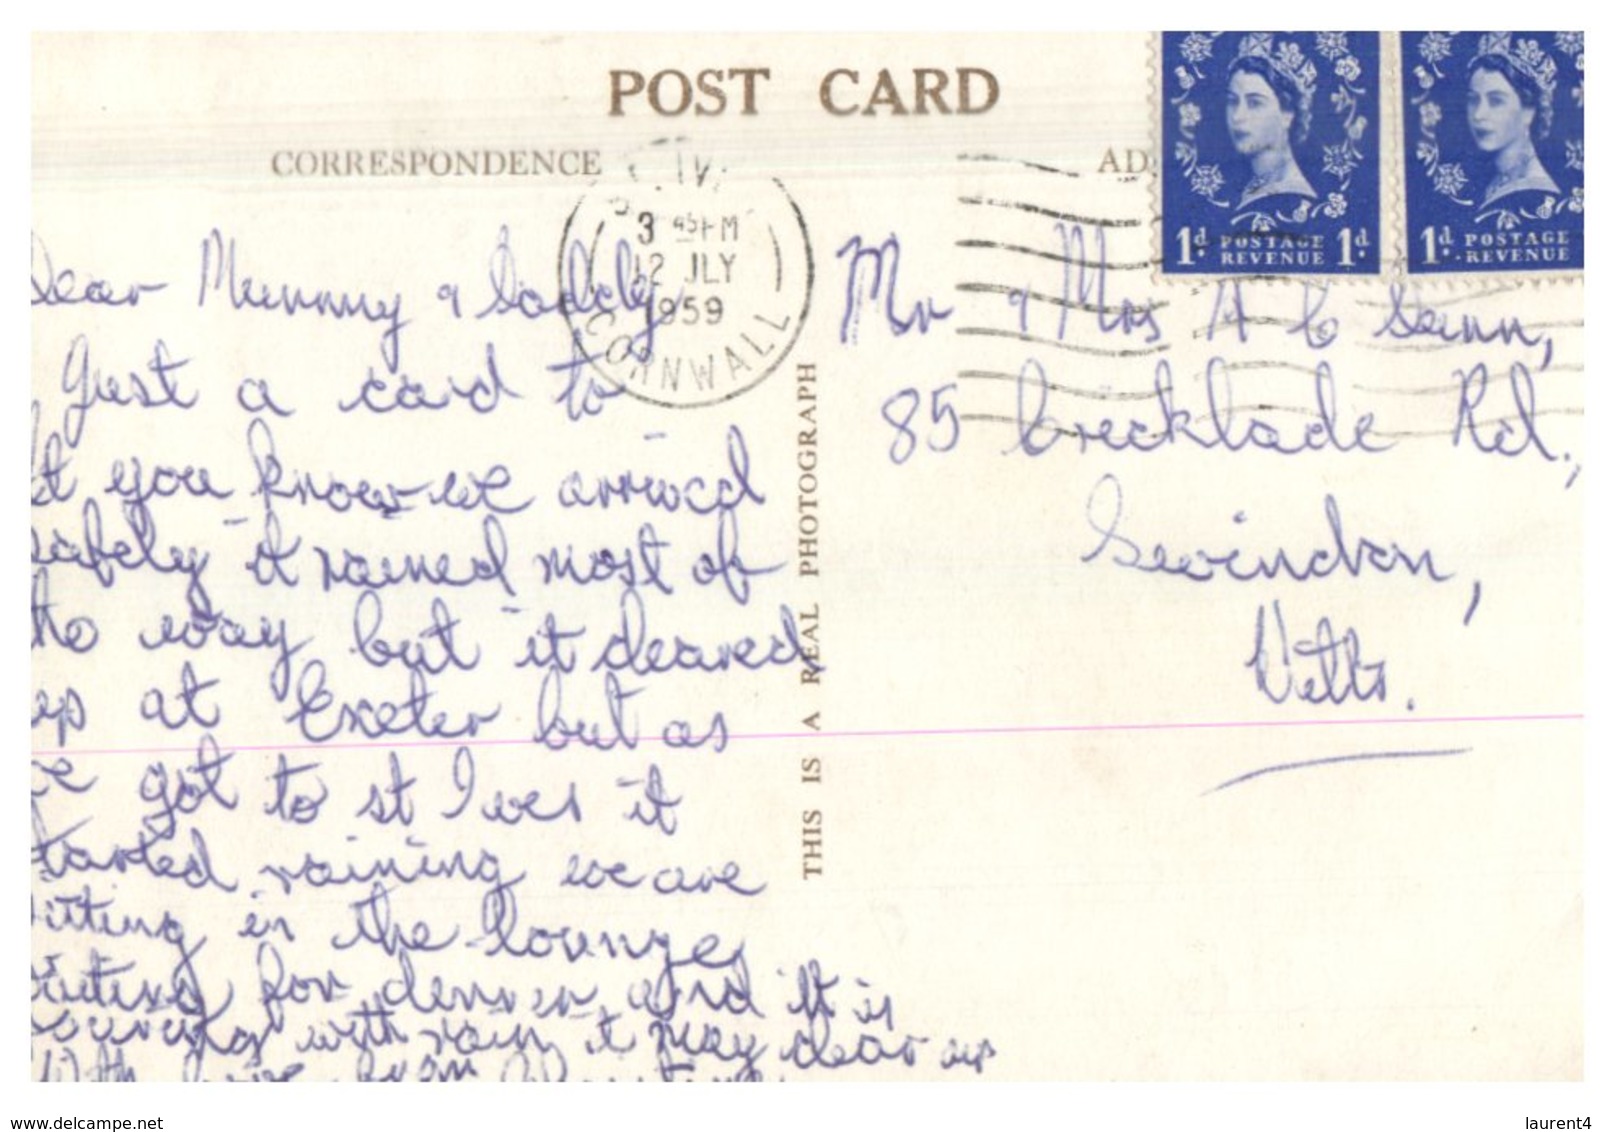 POST CARD
CORRESPONDENCE
AD
3 45 PM
12 JLY
1959
CORNWALL
1d. POSTAGE REVENUE 1d.
1d. POSTAGE REVENUE
Dear Mummy & Daddy
Just a card to
let you know we arrived
safely it rained most of
the way but it cleared
up at Exeter but as
we got to st Ives it
started raining we are
sitting in the lounge
waiting for dinner and it is
pouring with rain it may clear up
With love from
THIS IS A REAL PHOTOGRAPH
Mr & Mrs A C
85 Cricklade Rd.,
Swindon,
Wilts.
www.delcampe.net
laurent4